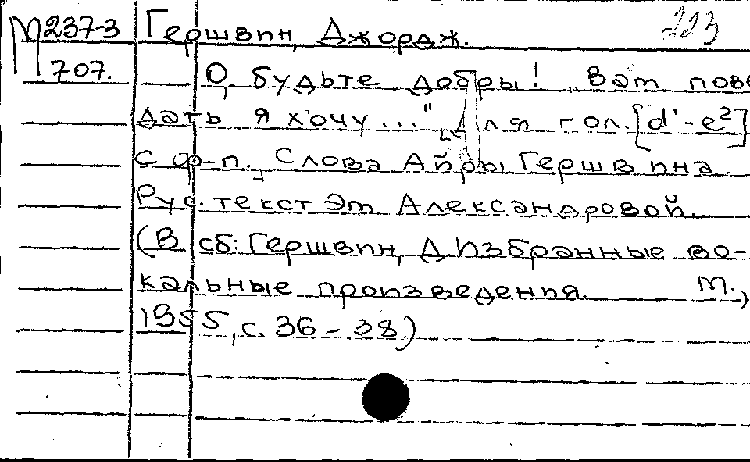 М237-3 Гершвин, Джордж. 223
707. О, будьте добры! Вам пове
дать я хочу..." Для гол. [d'-e²]
с ф-п. Слова Айры Гершвина
Рус. текст Эт Александровой.
(В сб: Гершвин, Д Избранные во-
кальные произведения. М.,
1955, с. 36-38)